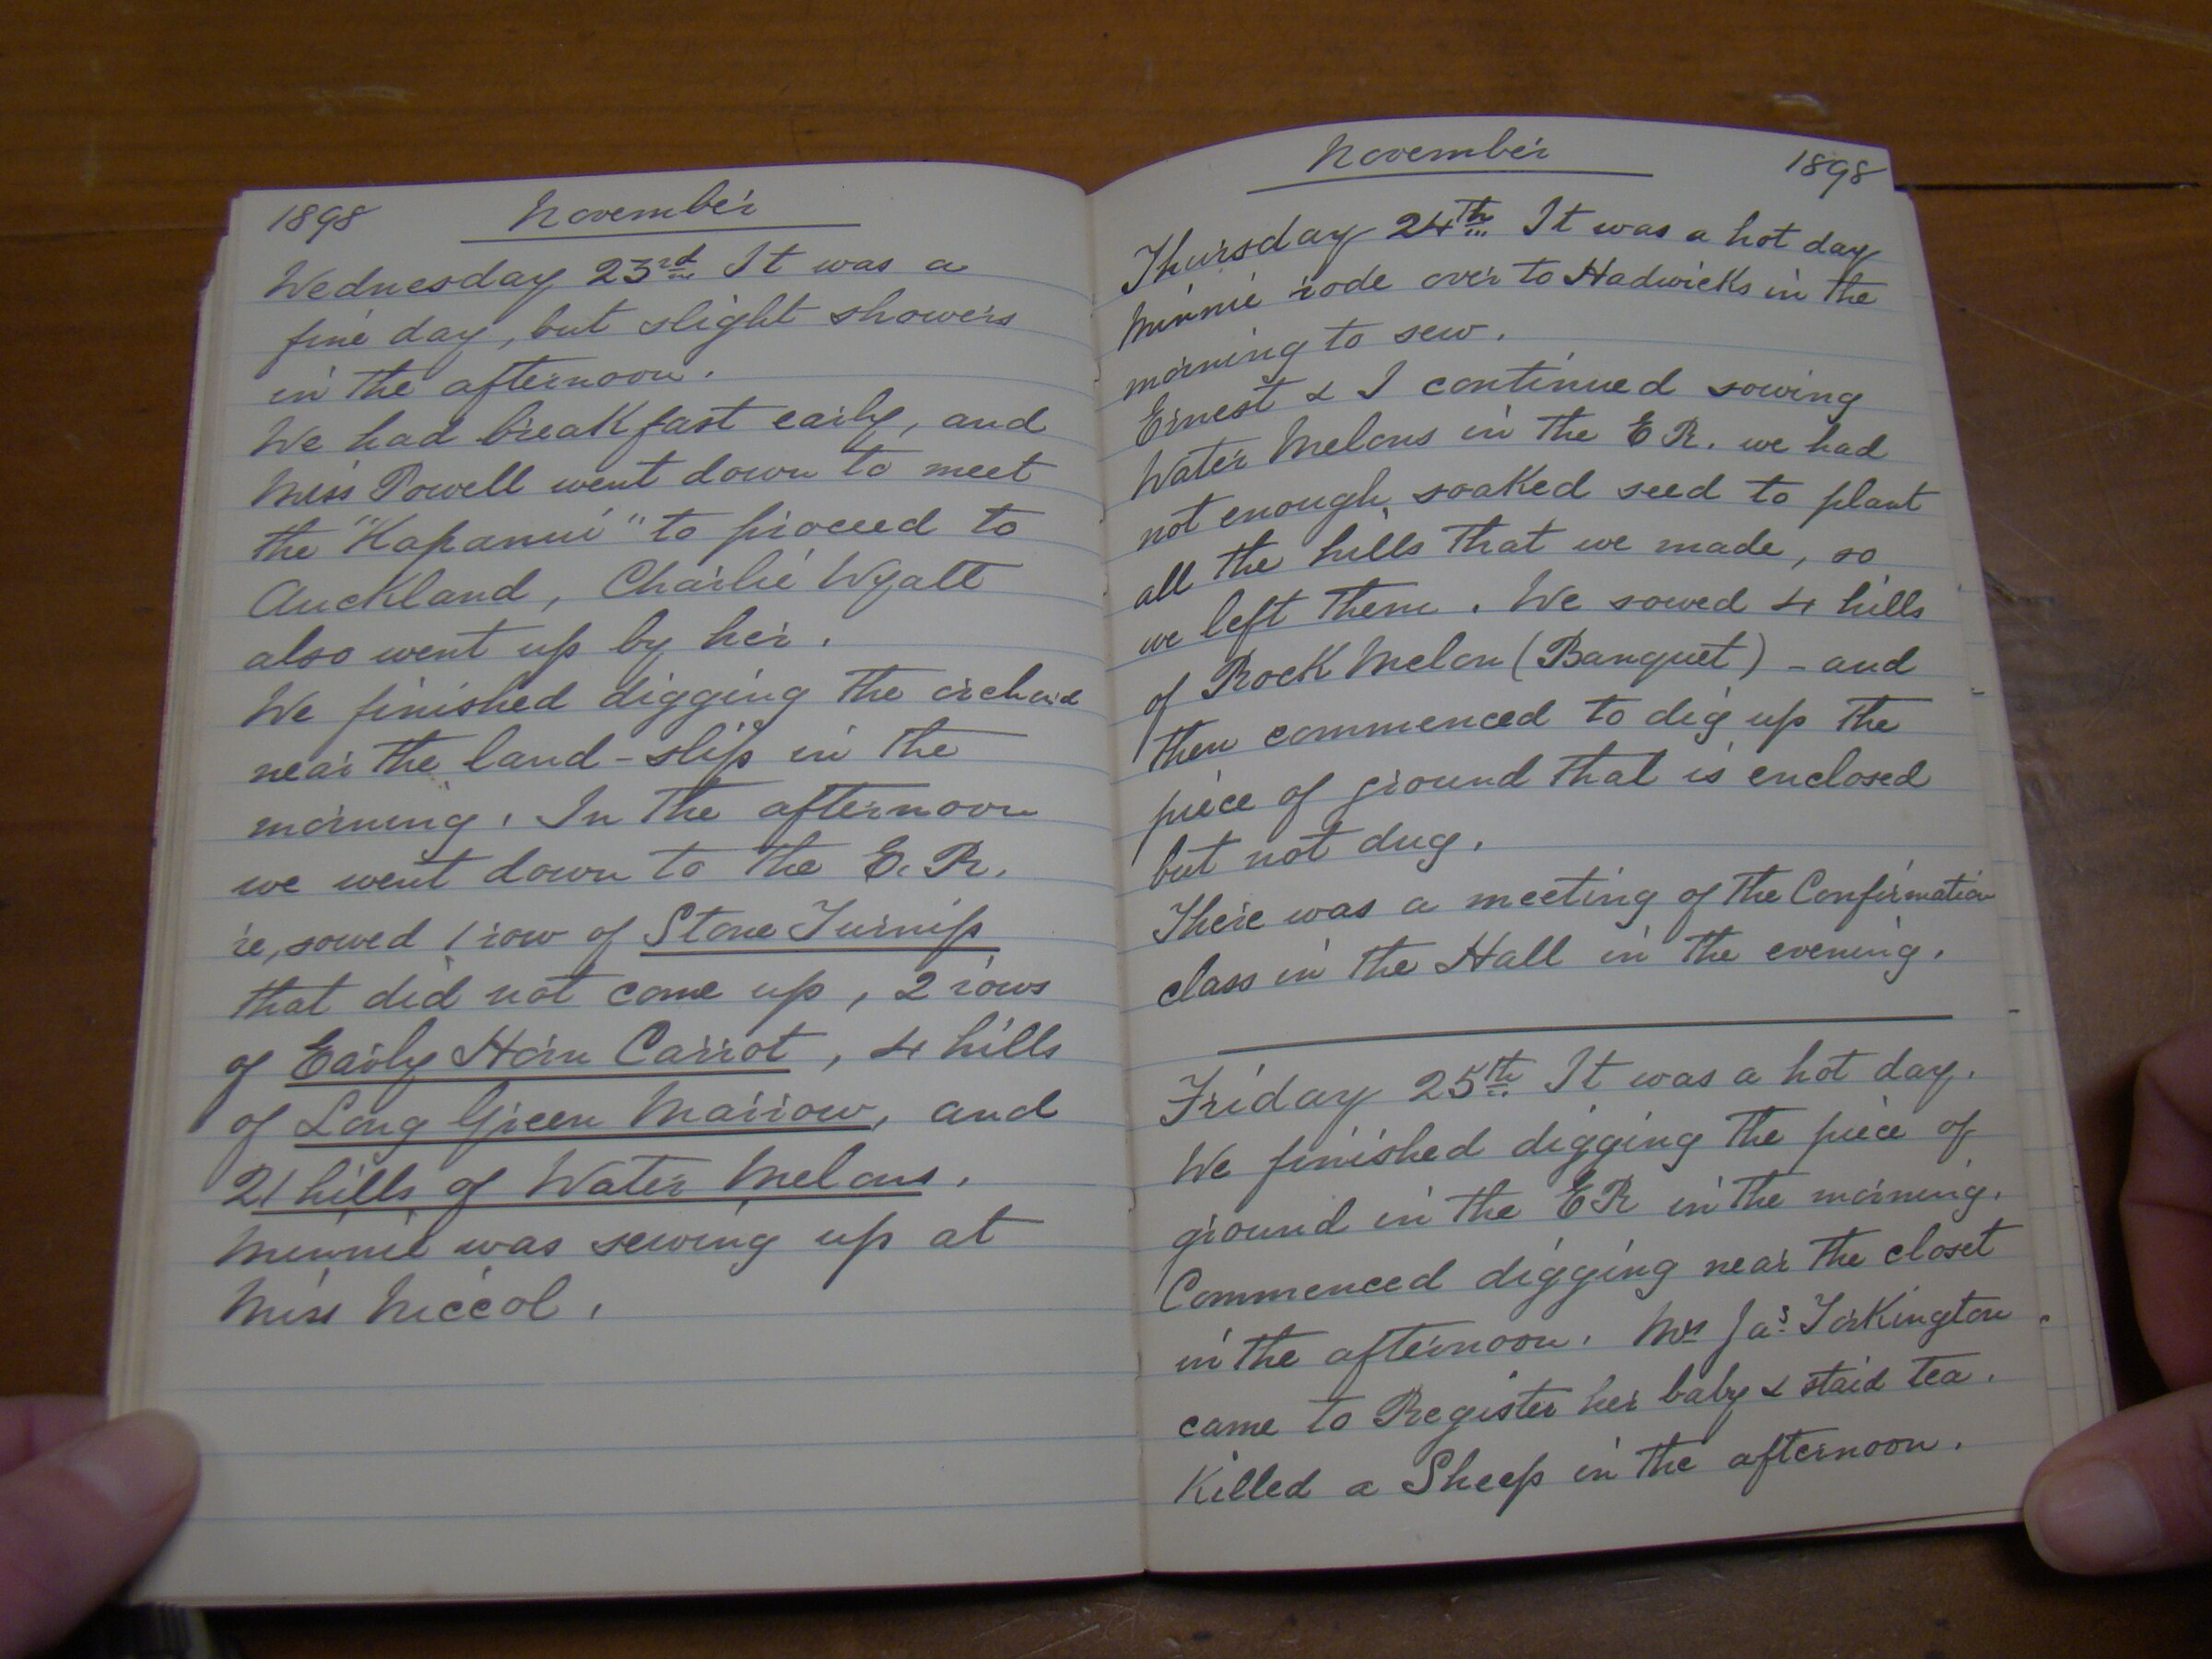 1898 November
Wednesday 23rd It was a
fine day, but slight showers
in the afternoon.
We had breakfast early, and
Miss Powell went down to meet
the "Kapanui" to proceed to
Auckland, Charlie Wyatt
also went up by her.
We finished digging the orchard
near the land-slip in the
morning. In the afternoon
we went down to the E. R.
re, sowed 1 row of Stone Turnip
that did not come up, 2 rows
of Early Horn Carrot, 4 hills
of Long Green Marrow, and
21 hills of Water Melons.
Minnie was sewing up at
Miss Niccol.
November 1898
Thursday 24th It was a hot day
Minnie rode over to Hadwicks in the
morning to sew.
Ernest & I continued sowing
Water Melons in the E R. we had
not enough soaked seed to plant
all the hills that we made, so
we left them. We sowed 4 hills
of Rock Melon (Banquet) - and
then commenced to dig up the
piece of ground that is enclosed
but not dug.
There was a meeting of the Confirmation
class in the Hall in the evening.
Friday 25th It was a hot day.
We finished digging the piece of
ground in the E R in the morning.
Commenced digging near the closet
in the afternoon. Mrs Jas Torkington
came to Register her baby & staid tea.
Killed a Sheep in the afternoon.